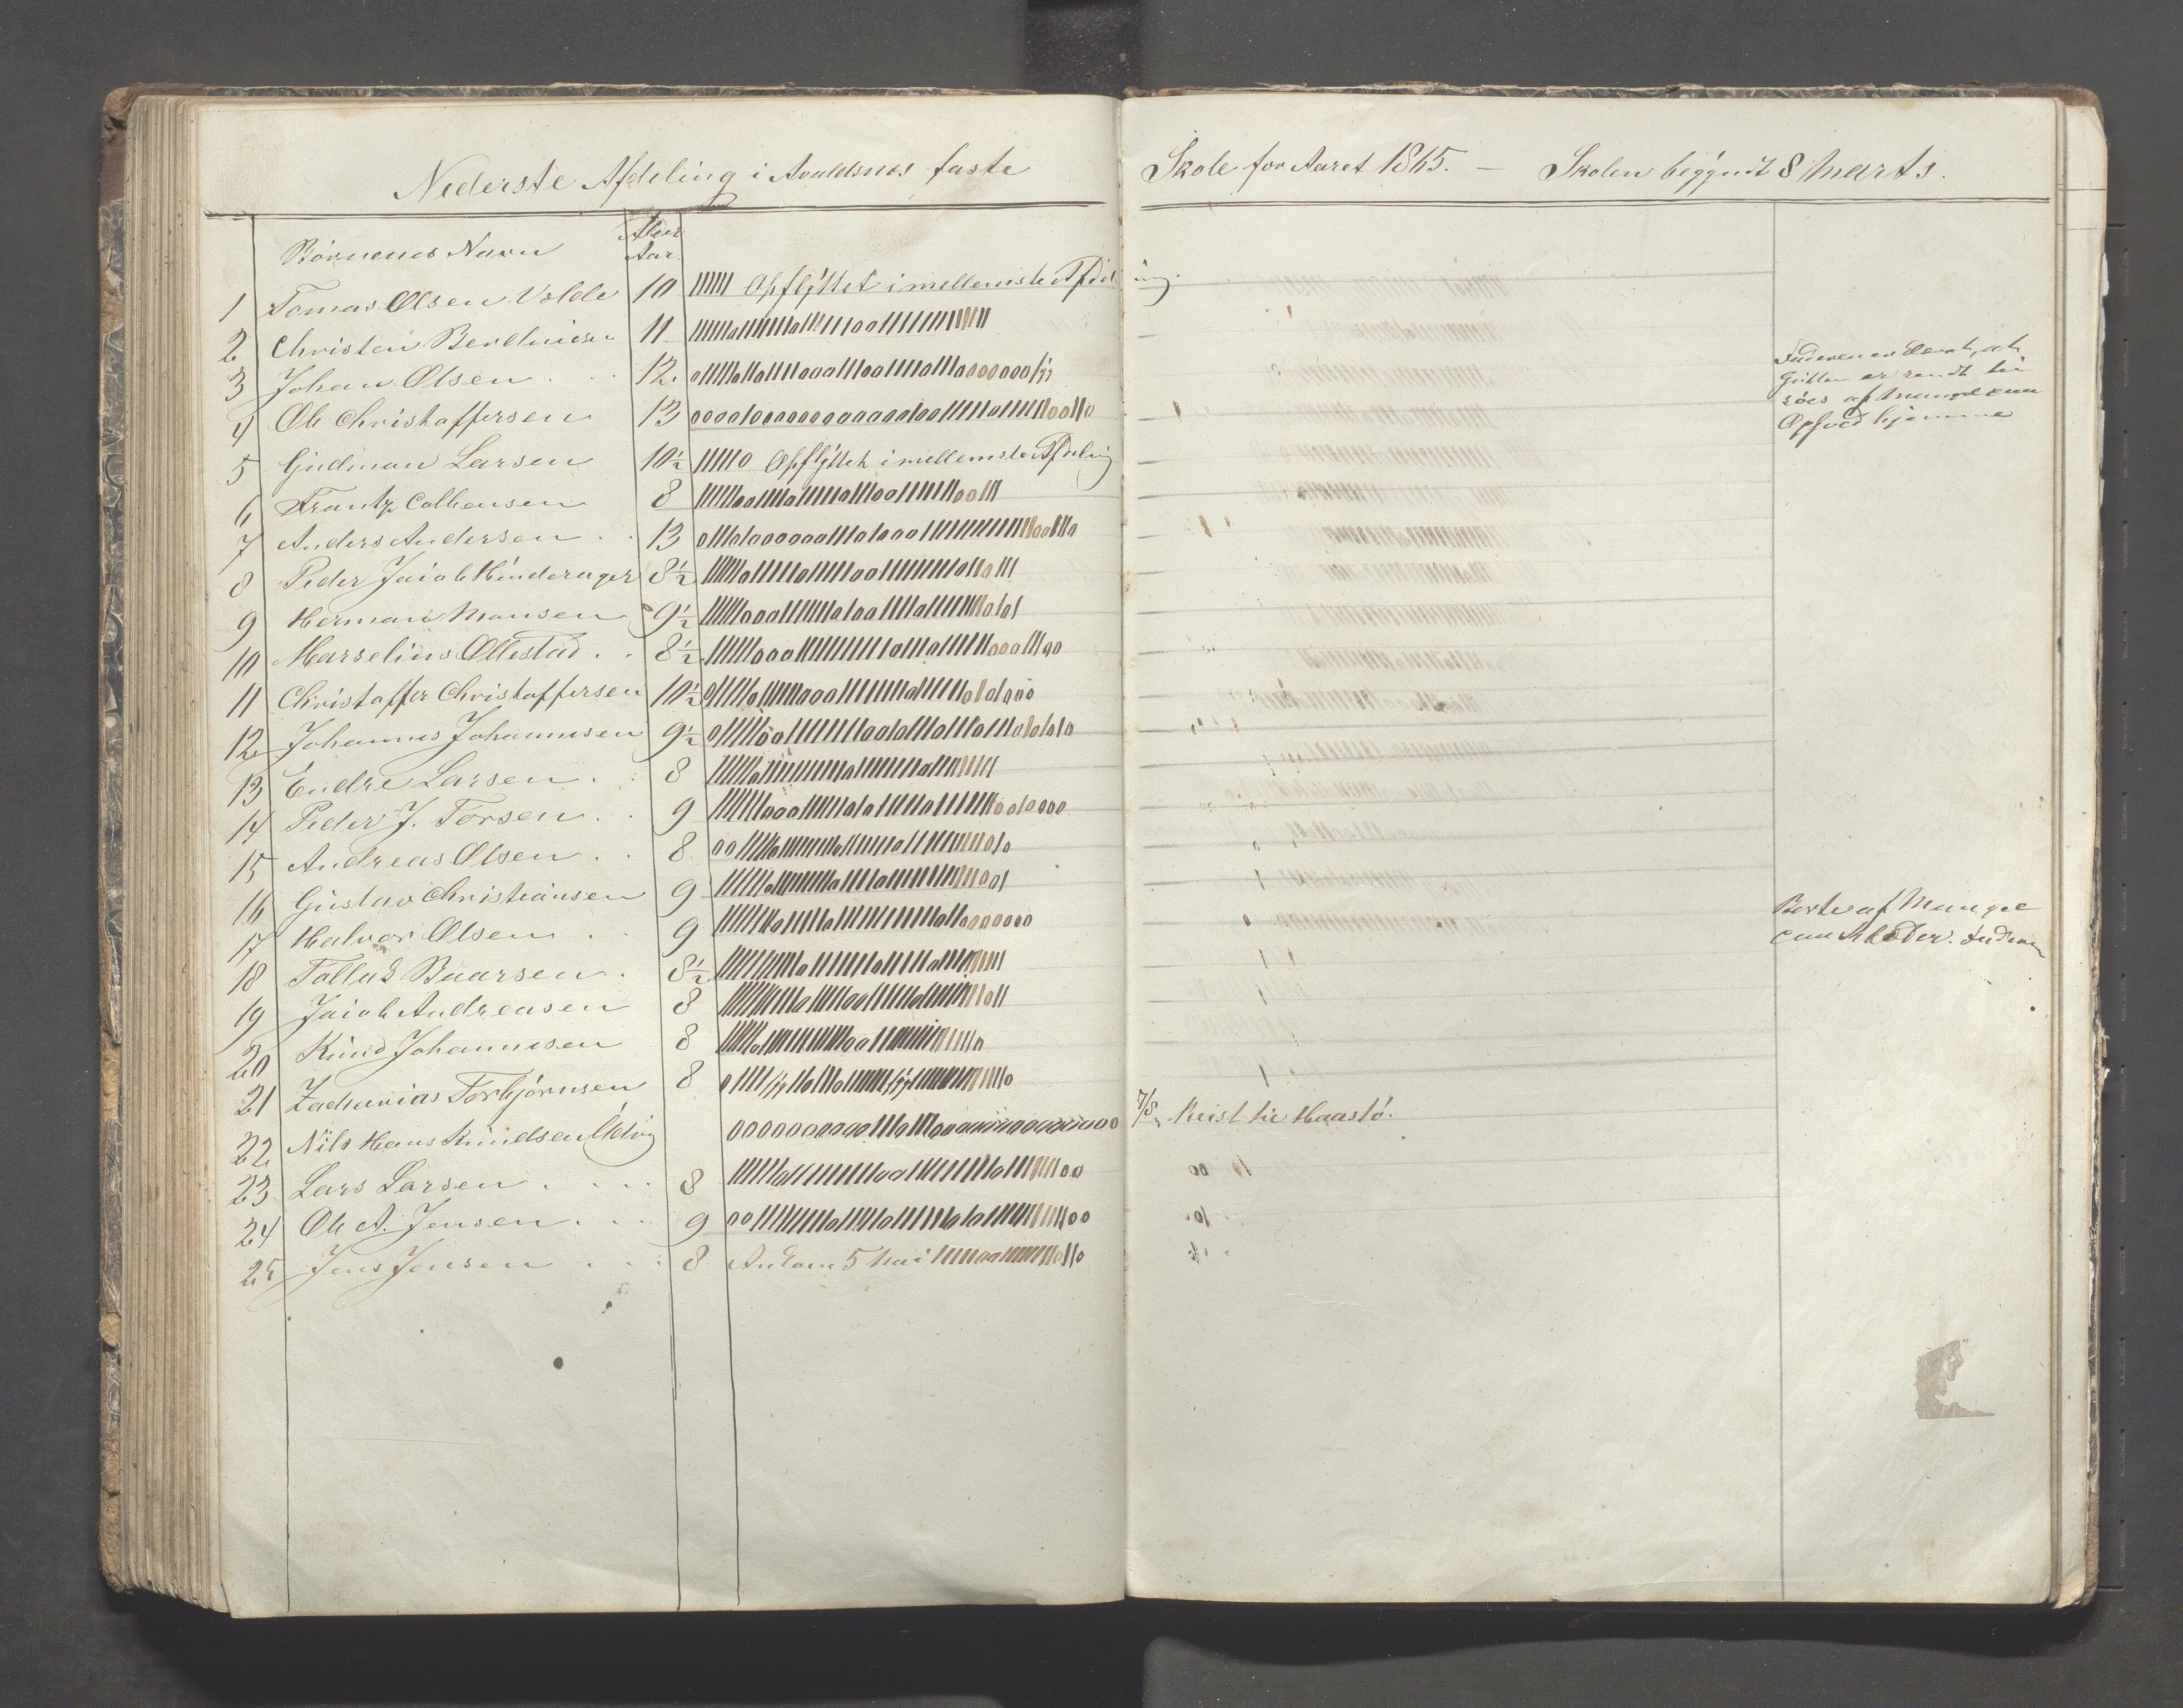 Nederste Afdeling i Avaldsnes faste Skole for Aaret 1865. — Skolen begyndt 8 Marts.
Børnenes Navn Alder Aar
1 Tomas Olsen Velde 10 Opflyttet i mellemste Afdeling.
2 Christen Berthinsen 11
3 Johan Olsen 12
4 Ole Christoffersen 13
5 Gudman Larsen 10½ Opflyttet i mellemste Afdeling
6 Frantz Colbensen 8
7 Anders Andersen 13
8 Peder Jacob Hinderager 8½
9 Herman Monsen 9½
10 Marselius Ollestad 8½
11 Christoffer Christoffersen 10½
12 Johannes Johannesen 9½
13 Endre Larsen 8
14 Peder J. Torsen 9
15 Andreas Olsen 8
16 Gustav Christiansen 9
17 Halvor Olsen 9
18 Tollak Baarsen 8½
19 Jacob Andreasen 8
20 Knud Johannesen 8
21 Zacharias Torbjørnsen 8
22 Nils Hans Knudsen 7/8 Reist til
23 Lars Larsen 8
24 Ole A. Jensen 9
25 Jens Jensen 8 Ankom 5 Mai
at
Gutten er sendt til
af Mangel paa
Opfød hjemme
Borte af Mangel
paa Klæder.